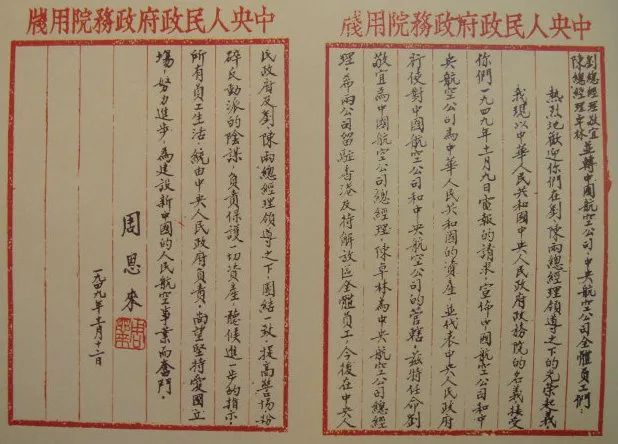 中央人民政府政務院用牋
劉總經理敬宜
陳總經理卓林
並轉中國航空公司、中央航空公司全體員工們:
熱烈地歡迎你們在劉、陳兩總經理領導之下的光榮起義。
我現以中華人民共和國中央人民政府政務院的名義接受
你們一九四九年十一月九日電報的請求,宣佈中國航空公司和中
央航空公司為中華人民共和國的資產,並代表中央人民政府
行使對中國航空公司和中央航空公司的管轄。茲特任命劉
敬宜為中國航空公司總經理,陳卓林為中央航空公司總經
理,希兩公司留駐香港及待解放區全體員工,今後在中央人
中央人民政府政務院用牋
民政府及劉、陳兩總經理領導之下,團結一致,提高警惕,粉
碎反動派的陰謀,負責保護一切資產,聽候進一步的指示。
所有員工生活,統由中央人民政府負責。尚望堅持愛國立
場,努力進步,為建設新中國的人民航空事業而奮鬥。
周恩來
一九四九年十一月十二日